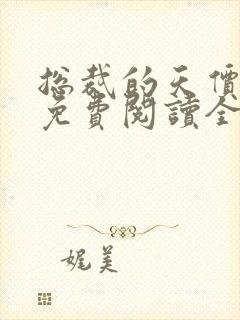 总裁的天價
免費閱讀全
娓美